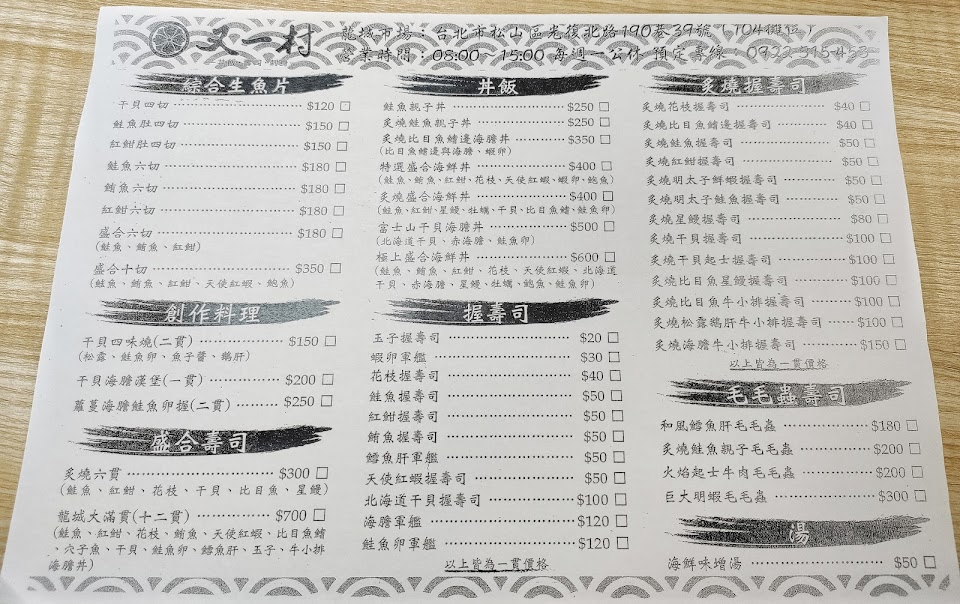 又一村
龍城市場：台北市松山區光復北路190巷39號（104攤位）
營業時間：08:00~15:00 每週一公休 預定專線：0922-545-453
綜合生魚片
干貝四切 $120 □
鮭魚肚四切 $150 □
紅魽肚四切 $150 □
鮭魚六切 $180 □
鮪魚六切 $180 □
紅魽六切 $180 □
盛合六切 $180 □
(鮭魚、鮪魚、紅魽)
盛合十切 $350 □
(鮭魚、鮪魚、紅魽、花枝、天使紅蝦、鮑魚)
創作料理
干貝四味燒(二貫) $150 □
(松露、鮭魚卵、魚子醬、鵝肝)
干貝海膽漢堡(一貫) $200 □
蘿蔓海膽鮭魚卵握(二貫) $250 □
盛合壽司
炙燒六貫 $300 □
(鮭魚、紅魽、花枝、干貝、比目魚、星鰻)
龍城大滿貫(十二貫) $700 □
(鮭魚、紅魽、花枝、鮪魚、天使紅蝦、比目魚鰭
、穴子魚、干貝、鮭魚卵、鱈魚肝、玉子、牛小排
海膽丼)
丼飯
鮭魚親子丼 $250 □
炙燒鮭魚親子丼 $250 □
炙燒比目魚鰭邊海膽丼 $350 □
(比目魚鰭邊與海膽、蝦卵)
特選盛合海鮮丼 $400 □
(鮭魚、鮪魚、紅魽、花枝、天使紅蝦、蝦卵、鮑魚)
炙燒盛合海鮮丼 $400 □
(鮭魚、紅魽、星鰻、牡蠣、干貝、比目魚鰭、鮭魚卵)
富士山干貝海膽丼 $500 □
(北海道干貝、赤海膽、鮭魚卵)
極上盛合海鮮丼 $600 □
(鮭魚、鮪魚、紅魽、花枝、天使紅蝦、北海道
干貝、赤海膽、星鰻、牡蠣、鮑魚、鮭魚卵)
握壽司
玉子握壽司 $20 □
蝦卵軍艦 $30 □
花枝握壽司 $40 □
鮭魚握壽司 $50 □
紅魽握壽司 $50 □
鮪魚握壽司 $50 □
鱈魚肝軍艦 $50 □
天使紅蝦握壽司 $50 □
北海道干貝握壽司 $100 □
海膽軍艦 $120 □
鮭魚卵軍艦 $120 □
以上皆為一貫價格
炙燒握壽司
炙燒花枝握壽司 $40 □
炙燒比目魚鰭邊握壽司 $40 □
炙燒鮭魚握壽司 $50 □
炙燒紅魽握壽司 $50 □
炙燒明太子鮮蝦握壽司 $50 □
炙燒明太子鮭魚握壽司 $50 □
炙燒星鰻握壽司 $80 □
炙燒干貝握壽司 $100 □
炙燒干貝起士握壽司 $100 □
炙燒比目魚星鰻握壽司 $100 □
炙燒比目魚牛小排握壽司 $100 □
炙燒松露鵝肝牛小排握壽司 $100 □
炙燒海膽牛小排握壽司 $150 □
以上皆為一貫價格
毛毛蟲壽司
和風鱈魚肝毛毛蟲 $180 □
炙燒鮭魚親子毛毛蟲 $200 □
火焰起士牛肉毛毛蟲 $200 □
巨大明蝦毛毛蟲 $300 □
湯
海鮮味增湯 $50 □